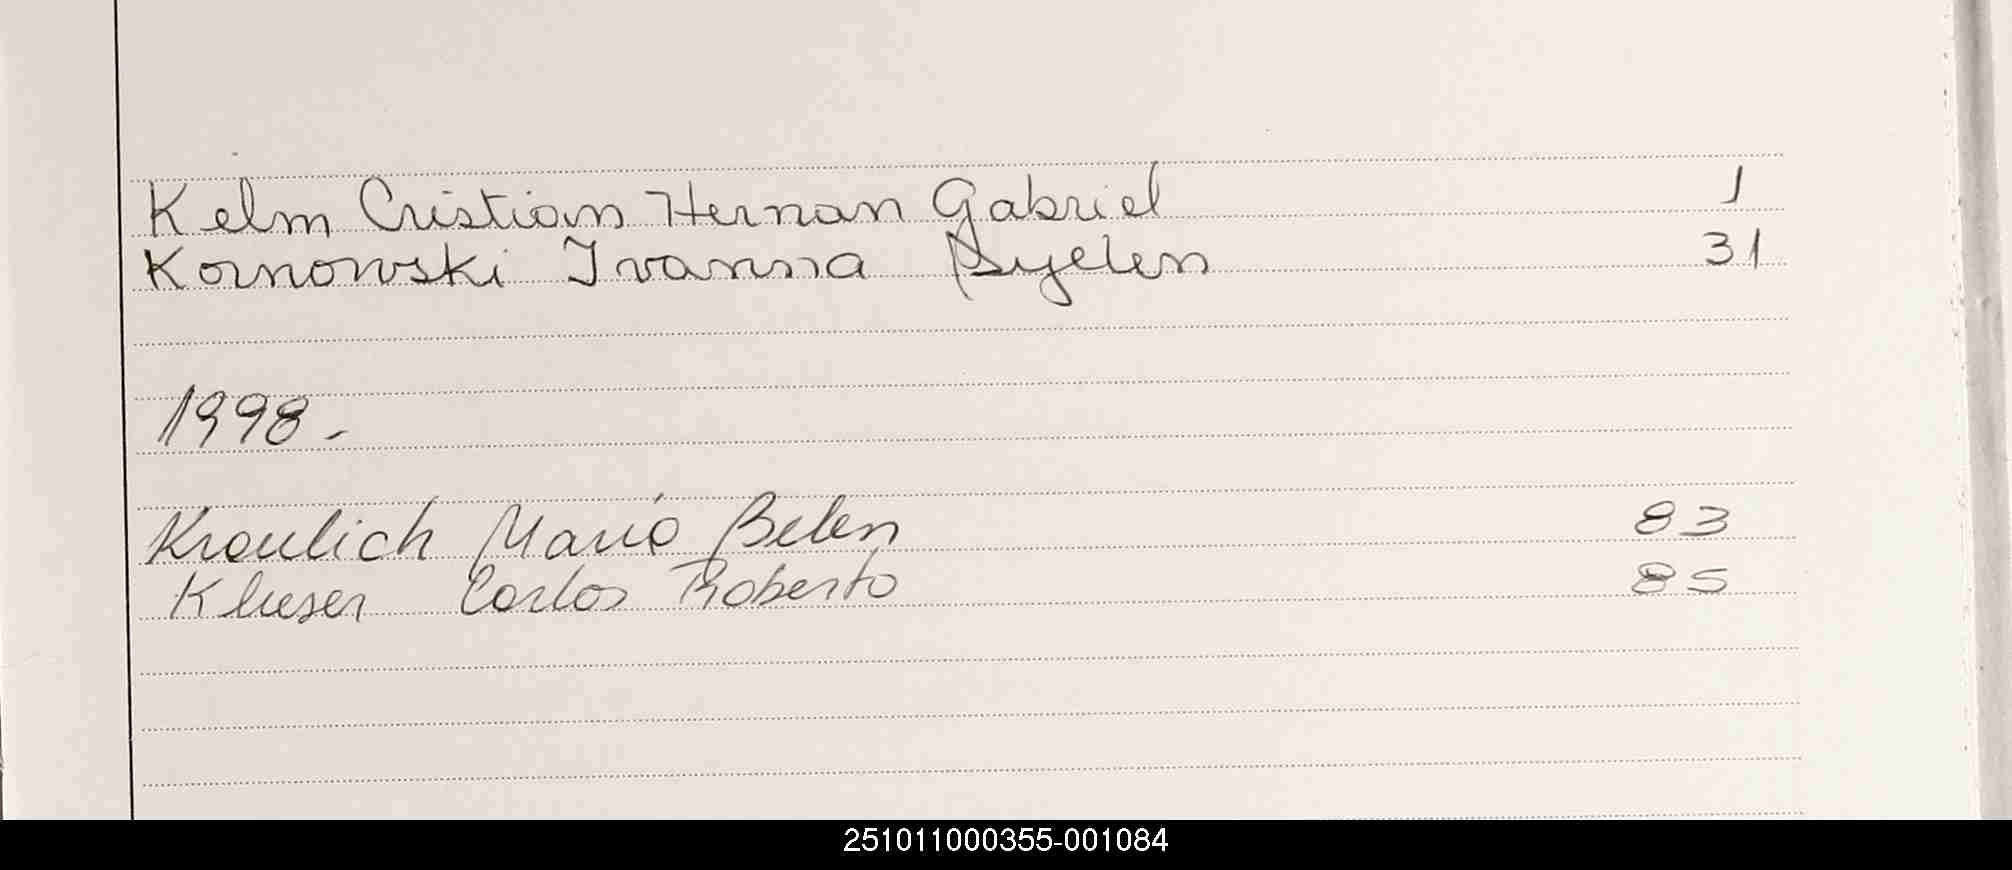 Kelm Cristian Hernan Gabriel 1
Kornowski Ivanna Ayelen 31
1998.-
Kraulich Maria Belen 83
Kluser Carlos Roberto 85
251011000355-001084